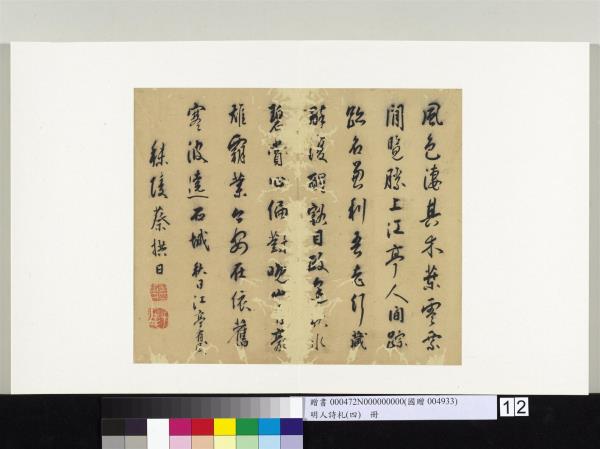 風色淒其木葉零乘
閒覽勝上江亭人間蹤
跡名兼利吾老行藏
醉復醒豁目政逢秋水
碧賞心偏對晚山青豪
雄霸業今安在依舊
寒波遶石城 秋日江亭有感
秣陵蔡拱日
贈書 000472N000000000(國贈 004933)
明人詩札(四) 冊
12